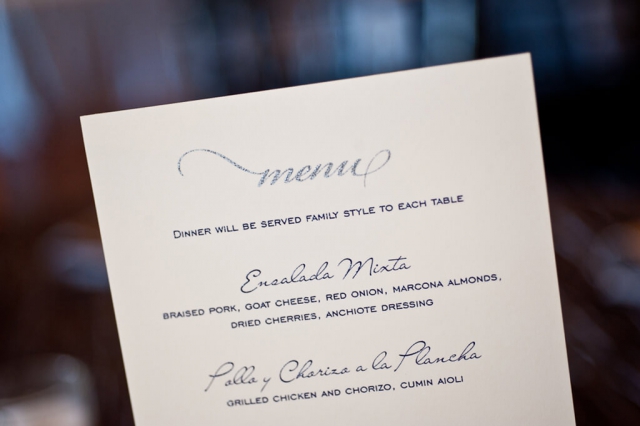 menu
DINNER WILL BE SERVED FAMILY STYLE TO EACH TABLE
Ensalada Mixta
BRAISED PORK, GOAT CHEESE, RED ONION, MARCONA ALMONDS,
DRIED CHERRIES, ANCHIOTE DRESSING
Pollo y Chorizo a la Plancha
GRILLED CHICKEN AND CHORIZO, CUMIN AIOLI